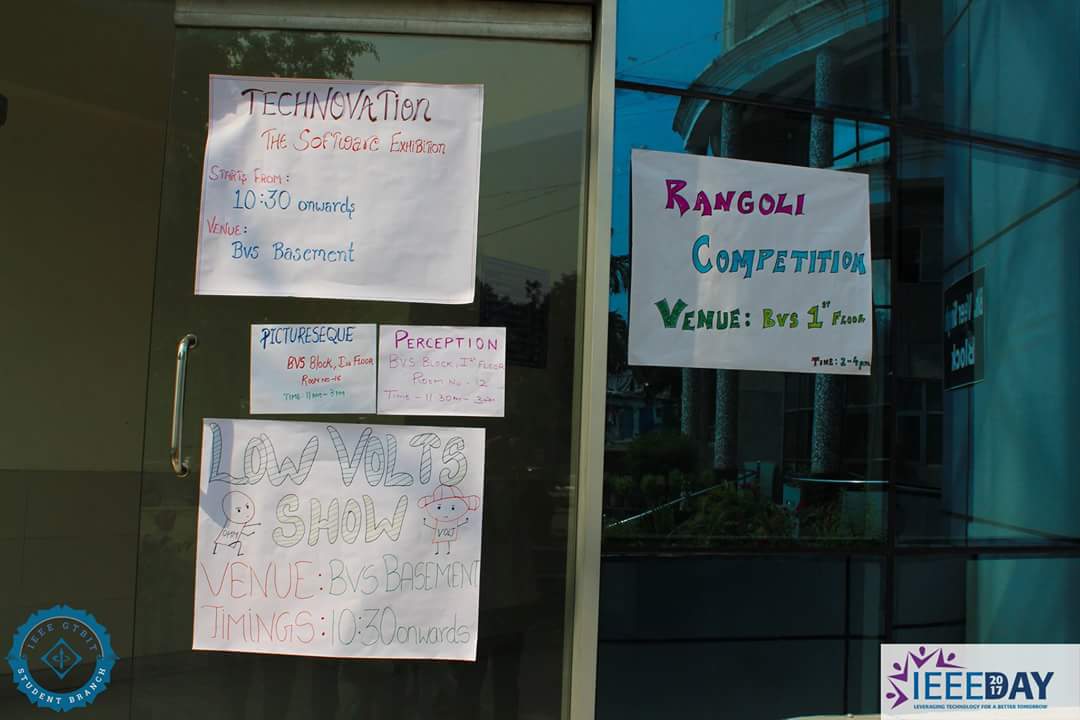 TECHNOVATION
THE SOFTWARE EXHIBITION
STARTS FROM:
10:30 onwards
VENUE:
BVS Basement
PICTURESEQUE
BVS BLOCK, IInd FLOOR
ROOM NO-16
TIME: 11 AM - 3 PM
PERCEPTION
BVS BLOCK, Ist FLOOR
ROOM NO - 12
TIME - 11:30AM - 3PM
LOW VOLTS
SHOW
OHM
VOLT
VENUE: BVS BASEMENT
TIMINGS: 10:30 onwards
RANGOLI
COMPETITION
VENUE: BVS 1ST FLOOR
TIME: 2-4pm
Block
IEEE GTBIT
STUDENT BRANCH
IEEE DAY
2017
LEVERAGING TECHNOLOGY FOR A BETTER TOMORROW